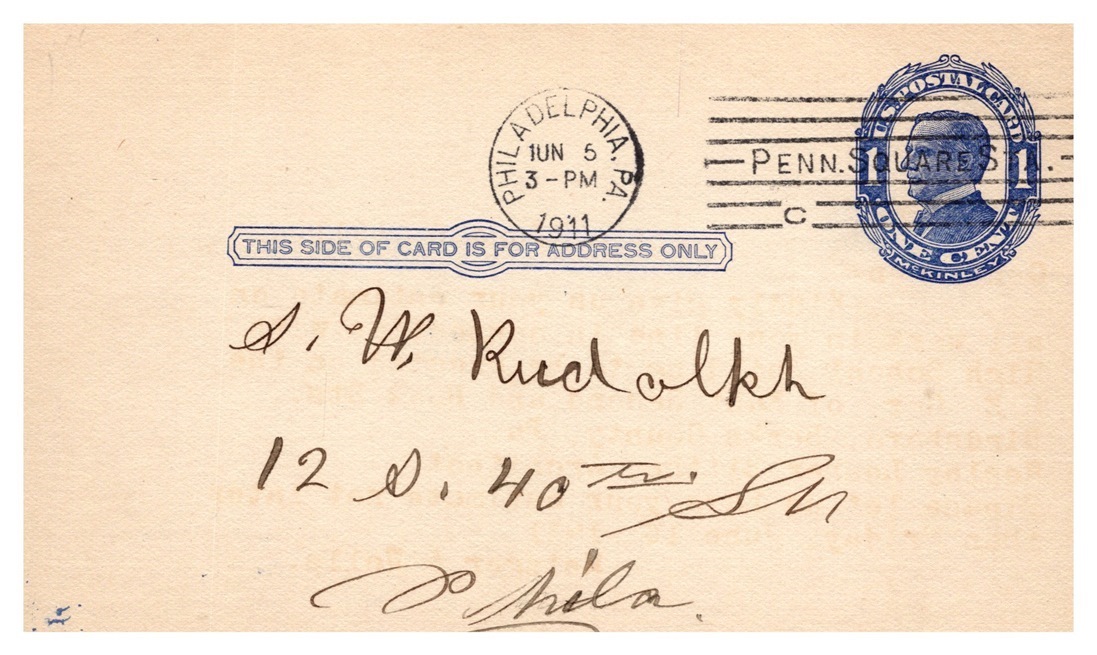 U.S. POSTAL CARD
1 1
ONE CENT
MCKINLEY
PHILADELPHIA, PA.
JUN 5
3-PM
1911
PENN. SQUARE STA.
C
THIS SIDE OF CARD IS FOR ADDRESS ONLY
S. W. Rudolph
12 S. 40th St
Phila.